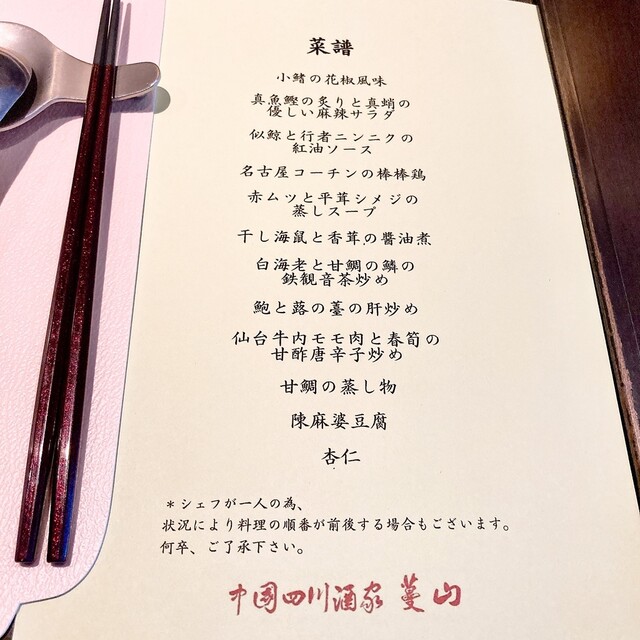 菜譜
小鰭の花椒風味
真魚鰹の炙りと真蛸の
優しい麻辣サラダ
似鯨と行者ニンニクの
紅油ソース
名古屋コーチンの棒棒鶏
赤ムツと平茸シメジの
蒸しスープ
干し海鼠と香茸の醬油煮
白海老と甘鯛の鱗の
鉄観音茶炒め
鮑と蕗の薹の肝炒め
仙台牛内モモ肉と春筍の
甘酢唐辛子炒め
甘鯛の蒸し物
陳麻婆豆腐
杏仁
＊シェフが一人の為、
状況により料理の順番が前後する場合もございます。
何卒、ご了承下さい。
中國四川酒家 蔓山